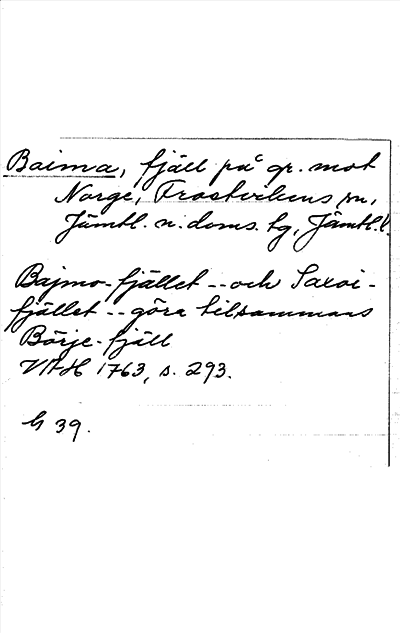 Baima, fjäll på gr. mot
Norge, Frostvikens sn,
Jämtl. n. doms. tg, Jämtl. l.
Bajmo-fjället -- och Saxoi-
fjället -- göra tilsammans
Börje-fjäll
VAH 1763, s. 293.
39.